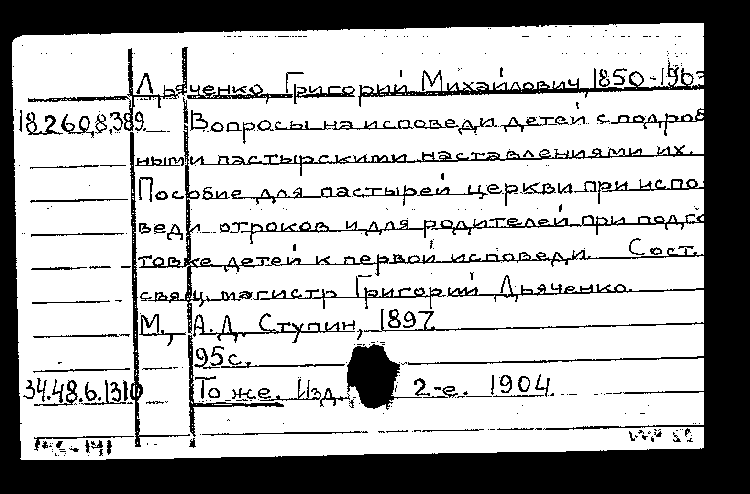 Дьяченко, Григорий Михайлович, 1850-1903
18.260.8.389. Вопросы на исповеди детей с подроб
ными пастырскими наставлениями их.
Пособие для пастырей церкви при испо
веди отроков и для родителей при подго
товке детей к первой исповеди. Сост.
свящ. магистр Григорий Дьяченко.
М., А.Д. Ступин, 1897.
95с.
34.48.6.1310 То же. Изд. 2-е. 1904.